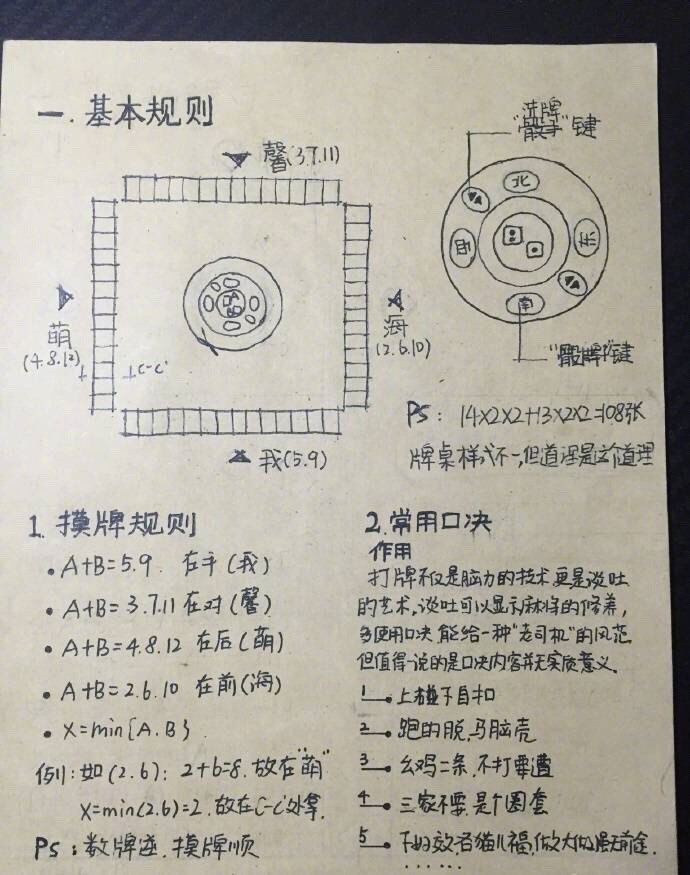 一.基本规则
馨(3.7.11)
萌
(4.8.12)
C-C'
海
(2.6.10)
我(5.9)
洗牌
"骰子"键
北
西
东
南
"骰牌"键
PS: 14×2×2+13×2×2=108张
牌桌样式不一,但道理是这个道理
1.摸牌规则
• A+B=5.9. 在手(我)
• A+B=3.7.11 在对(馨)
• A+B=4.8.12 在后(萌)
• A+B=2.6.10 在前(海)
• X=min{A.B}
例1:如(2.6): 2+6=8.放在"萌"
X=min(2.6)=2.放在C-C'处拿.
PS:数牌逆.摸牌顺
2.常用口决
作用
打牌不仅是脑力的技术更是谈吐
的艺术,谈吐可以显示麻将的修养,
多使用口决能给一种"老司机"的风范
但值得一说的是口决内容并无实质意义.
1 上碰下自扣
2 跑的脱,马脑壳
3 幺鸡二条,不打要遭
4 三家不要,是个圈套
5 干妇效,名猫儿福,做大做强无前途.
......